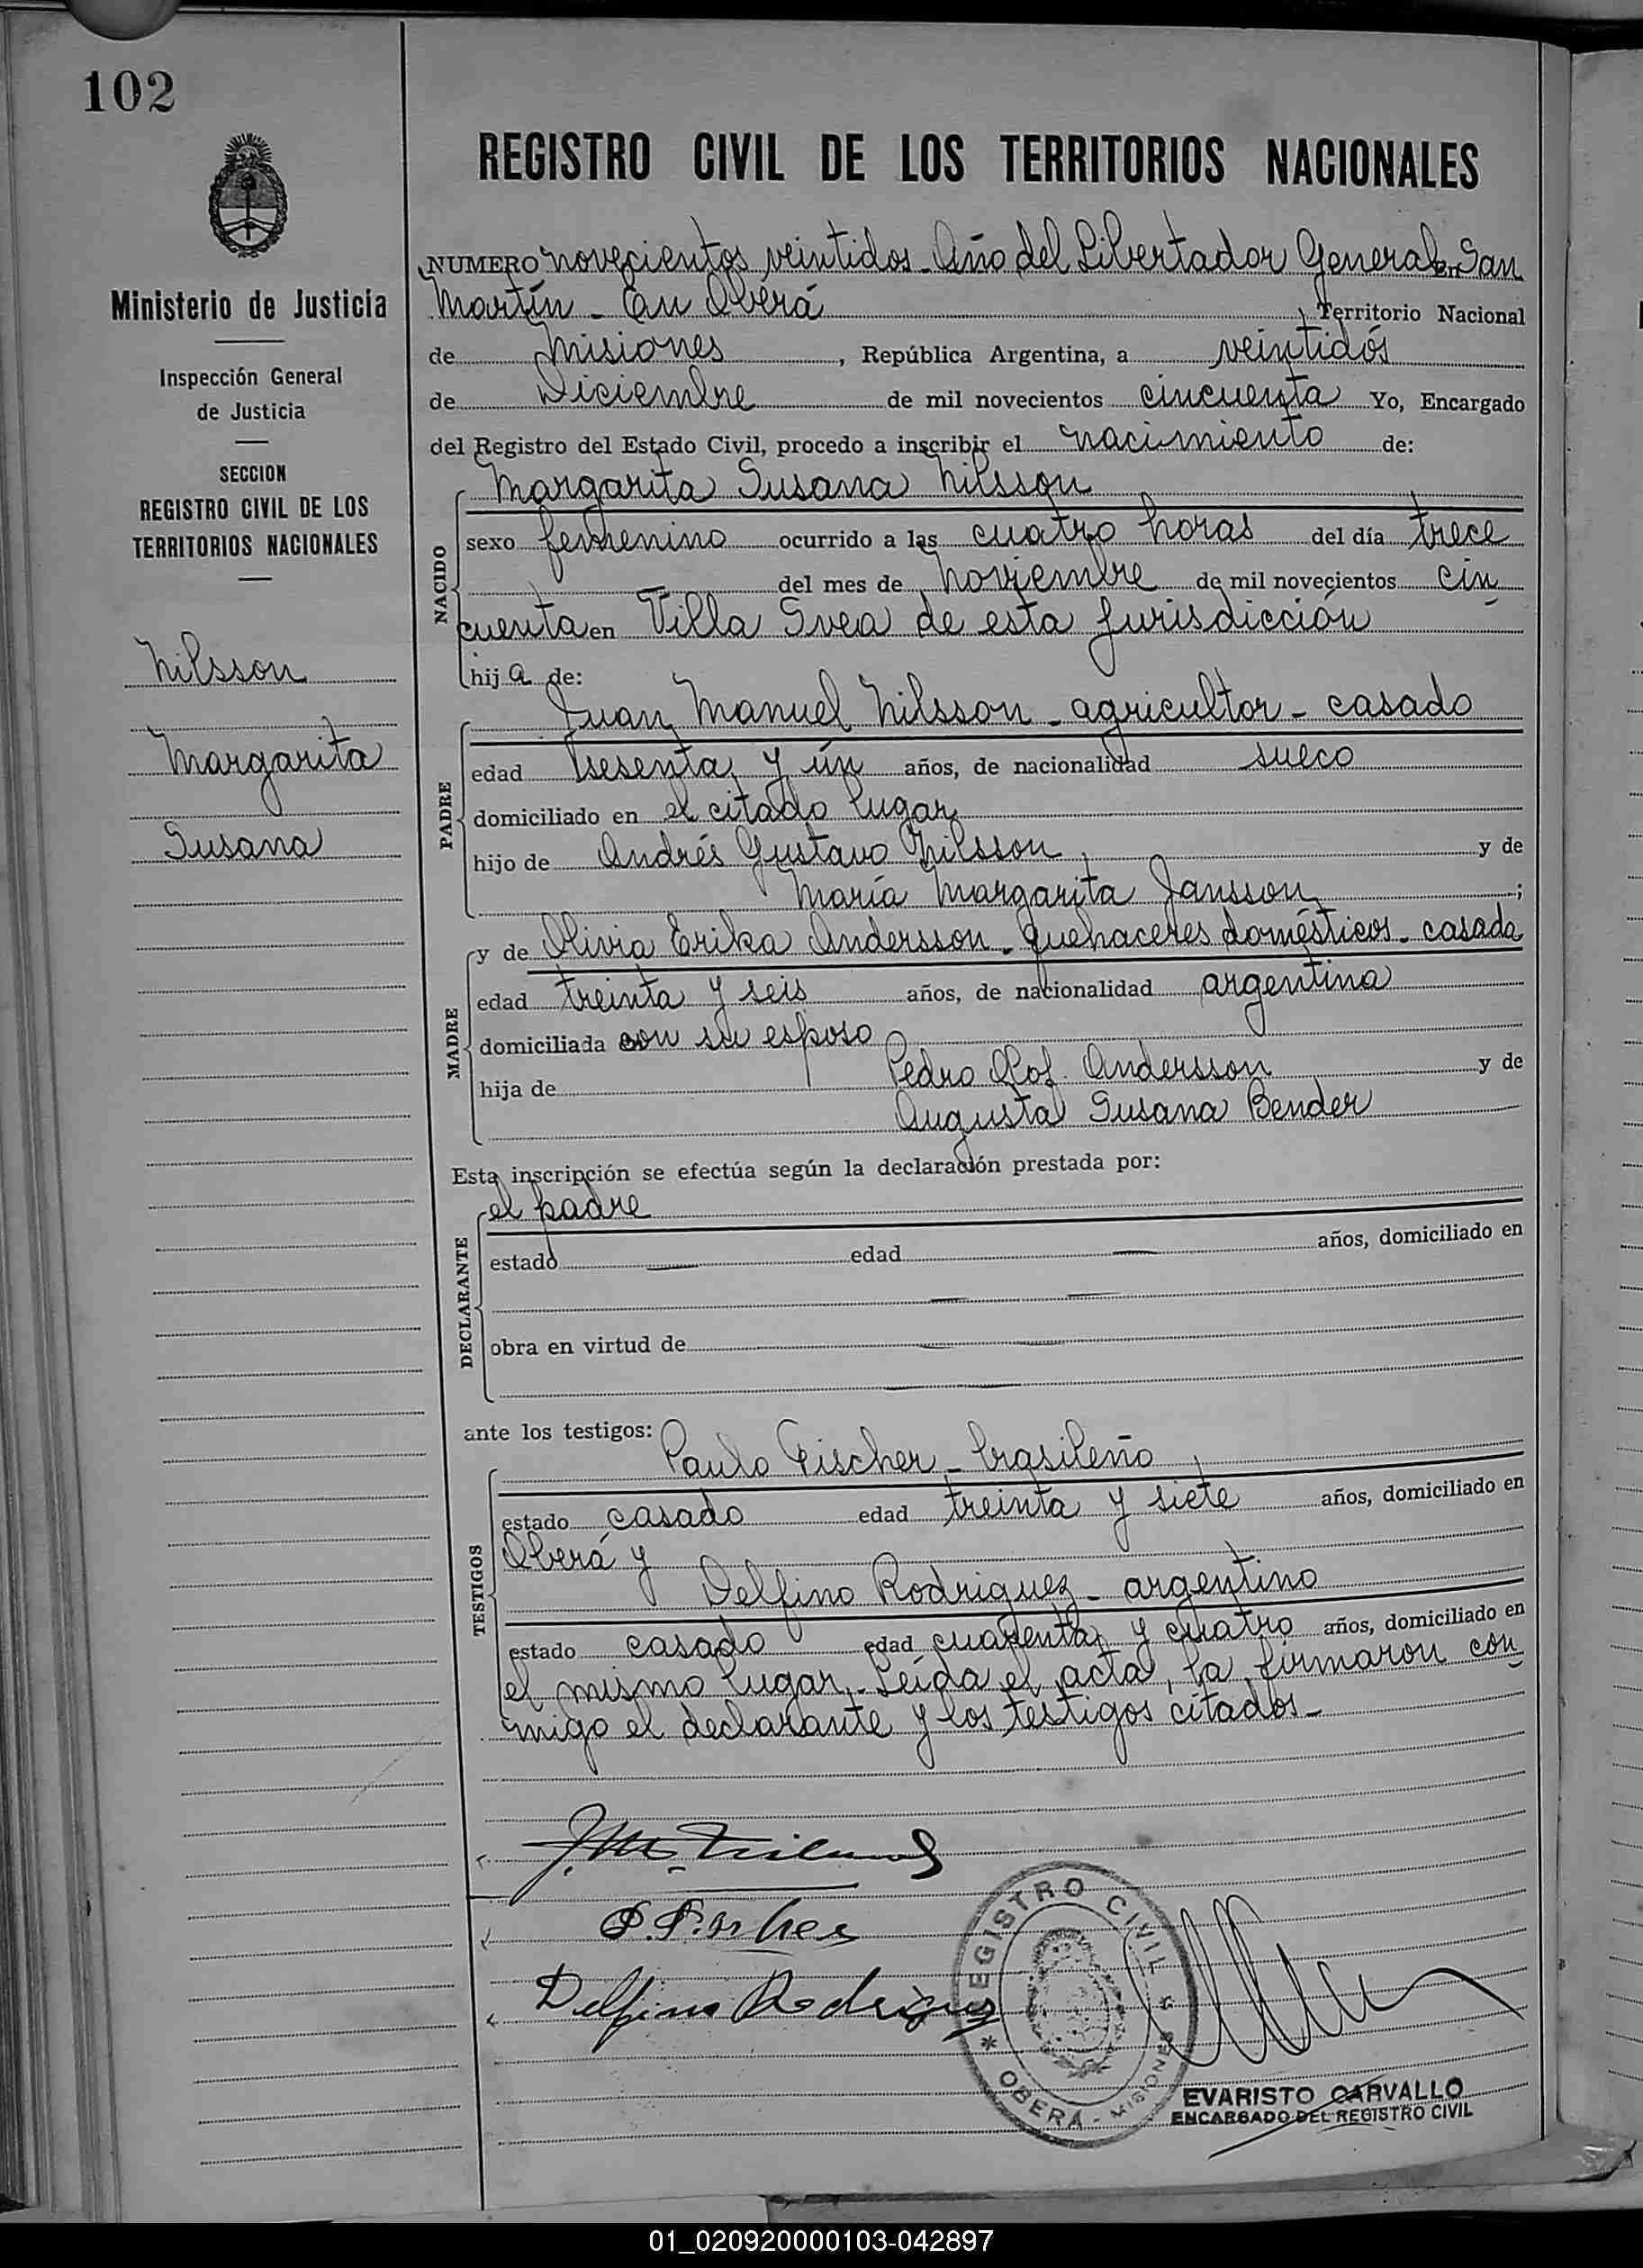 102
REGISTRO CIVIL DE LOS TERRITORIOS NACIONALES
Ministerio de Justicia
Inspección General
de Justicia
SECCION
REGISTRO CIVIL DE LOS
TERRITORIOS NACIONALES
Nilsson
Margarita
Susana
NUMERO novecientos veintidos - Año del Libertador General en San
Martín - En Oberá, Territorio Nacional
de Misiones, República Argentina, a veintidós
de Diciembre de mil novecientos cincuenta Yo, Encargado
del Registro del Estado Civil, procedo a inscribir el nacimiento de:
NACIDO
Margarita Susana Nilsson
sexo femenino ocurrido a las cuatro horas del día trece
del mes de noviembre de mil novecientos cin
cuenta en Villa Svea de esta jurisdicción
hij a de:
PADRE
Juan Manuel Nilsson - agricultor - casado
edad sesenta y un años, de nacionalidad sueco
domiciliado en el citado lugar
hijo de Andrés Gustavo Nilsson y de
María Margarita Jansson;
MADRE
y de Olivia Erika Andersson - quehaceres domésticos - casada
edad treinta y seis años, de nacionalidad argentina
domiciliada con su esposo
hija de Pedro Olof Andersson y de
Augusta Susana Bender
Esta inscripción se efectúa según la declaración prestada por:
DECLARANTE
el padre
estado — edad — años, domiciliado en
— —
obra en virtud de — —
—
ante los testigos:
TESTIGOS
Paulo Fischer - brasileño,
estado casado edad treinta y siete años, domiciliado en
Oberá y
Delfino Rodriguez - argentino
estado casado edad cuarenta y cuatro años, domiciliado en
el mismo lugar. Leída el acta, la firmaron con
migo el declarante y los testigos citados -
J. M. Nilsson
P. Fischer
Delfino Rodriguez
REGISTRO CIVIL
* OBERÁ - MISIONES *
EVARISTO CARVALLO
ENCARGADO DEL REGISTRO CIVIL
01_020920000103-042897